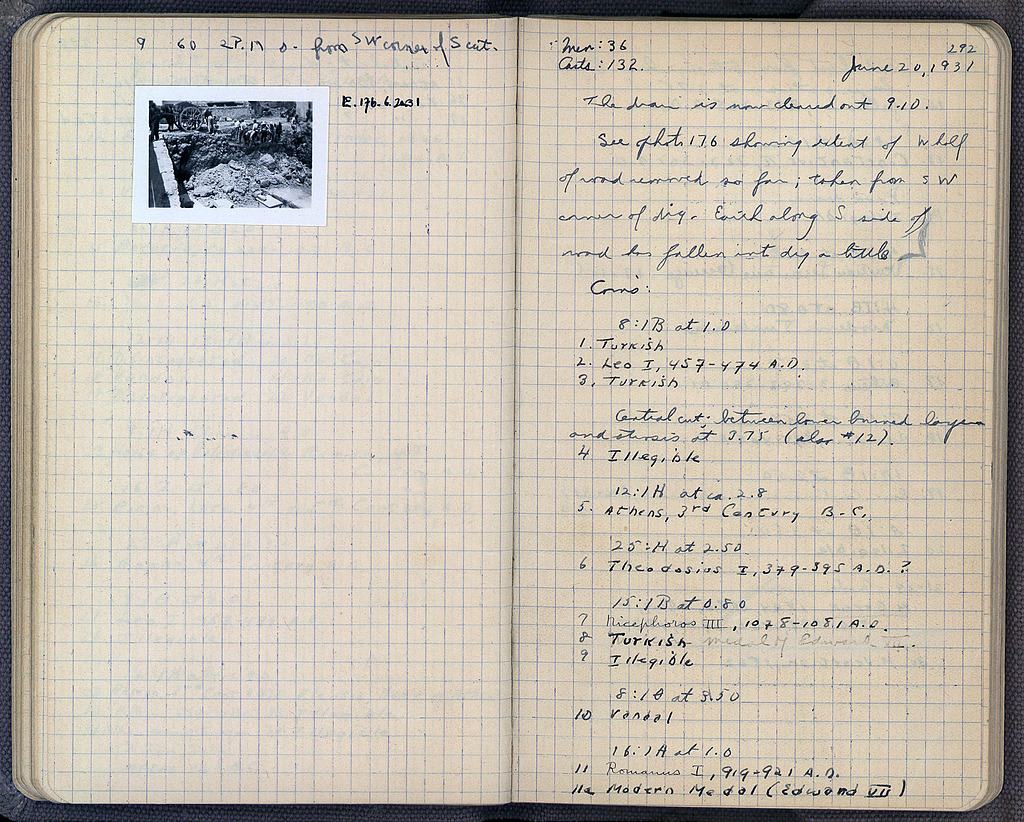 9 60 2P.M 0 - from SW corner of S cut.
E.176.6.20.31
Men: 36
292
Carts: 132.
June 20, 1931
The drain is now cleared out 9.10.
See photo 176 showing extent of W half
of road removed so far; taken from SW
corner of dig. Earth along S side of
road has fallen into dig a little
Coins:
8:1B at 1.0
1. Turkish
2. Leo I, 457-474 A.D.
3. Turkish
Central cut; between lower burned layer
and stosis at 3.75 (also #12).
4 Illegible
12:1H at ca. 2.8
5. Athens, 3rd Century B.C.
25:H at 2.50
6 Theodosius I, 379-395 A.D.?
15:1B at 0.80
7 Nicephoros III, 1078-1081 A.D.
8 Turkish medal of Edward VII.
9 Illegible
8:1Θ at 3.50
10 Vandal
16:1A at 1.0
11 Romanus I, 919-921 A.D.
11a Modern Medal (Edward VII)